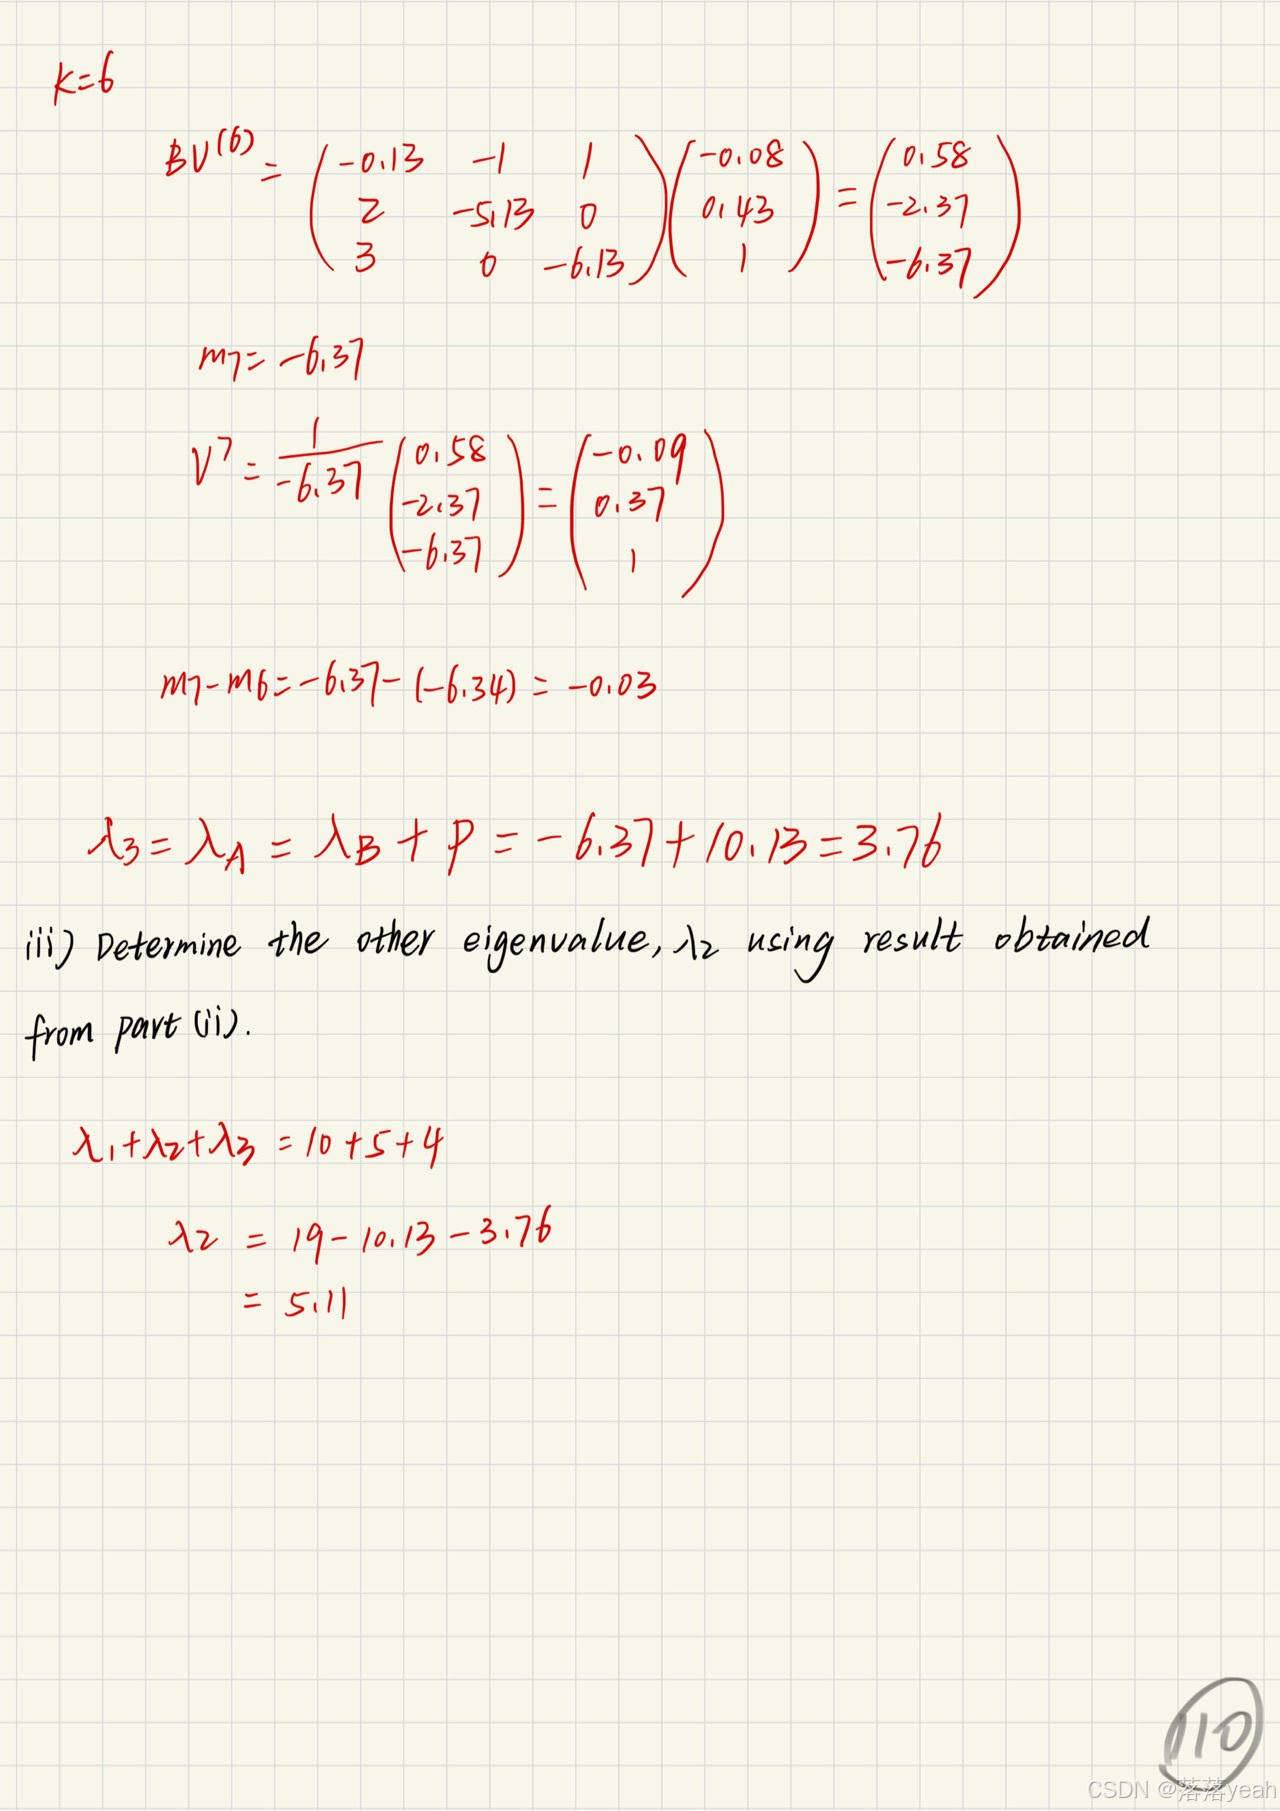 K=6
BV⁽⁶⁾ = (-0.13 -1 1; 2 -5.13 0; 3 0 -6.13)(-0.08; 0.43; 1) = (0.58; -2.37; -6.37)
m₇ = -6.37
V⁷ = 1/-6.37 (0.58; -2.37; -6.37) = (-0.09; 0.37; 1)
m₇-m₆ = -6.37-(-6.34) = -0.03
λ₃ = λA = λB + P = -6.37 + 10.13 = 3.76
iii) Determine the other eigenvalue, λ₂ using result obtained
from part (ii).
λ₁+λ₂+λ₃ = 10+5+4
λ₂ = 19-10.13-3.76
= 5.11
110
CSDN @落落yeah